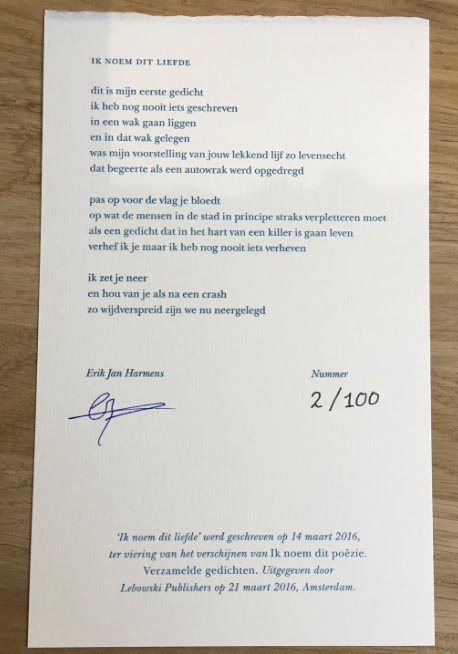 IK NOEM DIT LIEFDE
dit is mijn eerste gedicht
ik heb nog nooit iets geschreven
in een wak gaan liggen
en in dat wak gelegen
was mijn voorstelling van jouw lekkend lijf zo levensecht
dat begeerte als een autowrak werd opgedregd
pas op voor de vlag je bloedt
op wat de mensen in de stad in principe straks verpletteren moet
als een gedicht dat in het hart van een killer is gaan leven
verhef ik je maar ik heb nog nooit iets verheven
ik zet je neer
en hou van je als na een crash
zo wijdverspreid zijn we nu neergelegd
Erik Jan Harmens
Nummer
2/100
'Ik noem dit liefde' werd geschreven op 14 maart 2016,
ter viering van het verschijnen van Ik noem dit poëzie.
Verzamelde gedichten. Uitgegeven door
Lebowski Publishers op 21 maart 2016, Amsterdam.